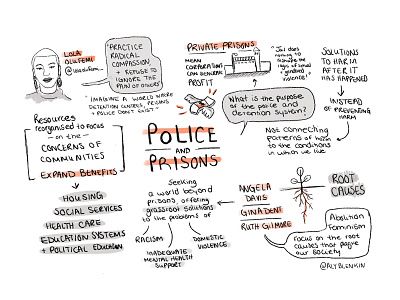 LOLA
OLUFEMI
@lolaolufemi_
"PRACTICE
RADICAL
COMPASSION
+ REFUSE TO
IGNORE THE
PAIN OF OTHERS"
"IMAGINE A WORLD WHERE
DETENTION CENTRES, PRISONS
+ POLICE DON'T EXIST"
PRIVATE PRISONS
MEAN
CORPORATIONS
CAN GENERATE
PROFIT
"Jail does
nothing to
dismantle the
logic of sexual
/ gendered
violence"
SOLUTIONS
TO HARM
AFTER IT
HAS HAPPENED
INSTEAD
OF PREVENTING
HARM
What is the purpose
of the police and
detention system?
Not connecting
patterns of harm
to the conditions
in which we live
POLICE
AND
PRISONS
Resources
reorganised to focus
on the
CONCERNS OF
COMMUNITIES
EXPAND BENEFITS
HOUSING
SOCIAL SERVICES
HEALTH CARE
EDUCATION SYSTEMS
+ POLITICAL EDUCATION
Seeking
a world beyond
prisons, offering
grassroots solutions
to the problems of
RACISM
INADEQUATE
MENTAL HEALTH
SUPPORT
DOMESTIC
VIOLENCE
ANGELA
DAVIS
GINA DENT
RUTH GILMORE
ROOT
CAUSES
Abolition
Feminism
Focus on the root
causes that plague
our society
@ALYBLENKIN